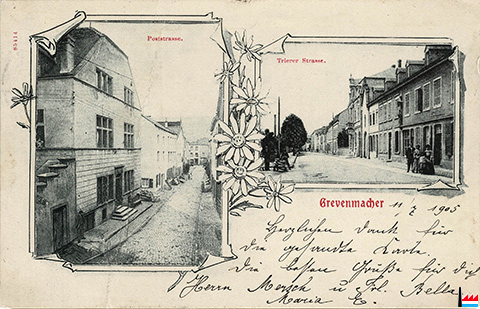 85414
Poststrasse.
Trierer Strasse.
Grevenmacher 11/7 1905
Herzlichen Dank für
die gesandte Karte.
Die besten Grüße für dich
Herrn Mersch u Frl. Bella
Maria E.